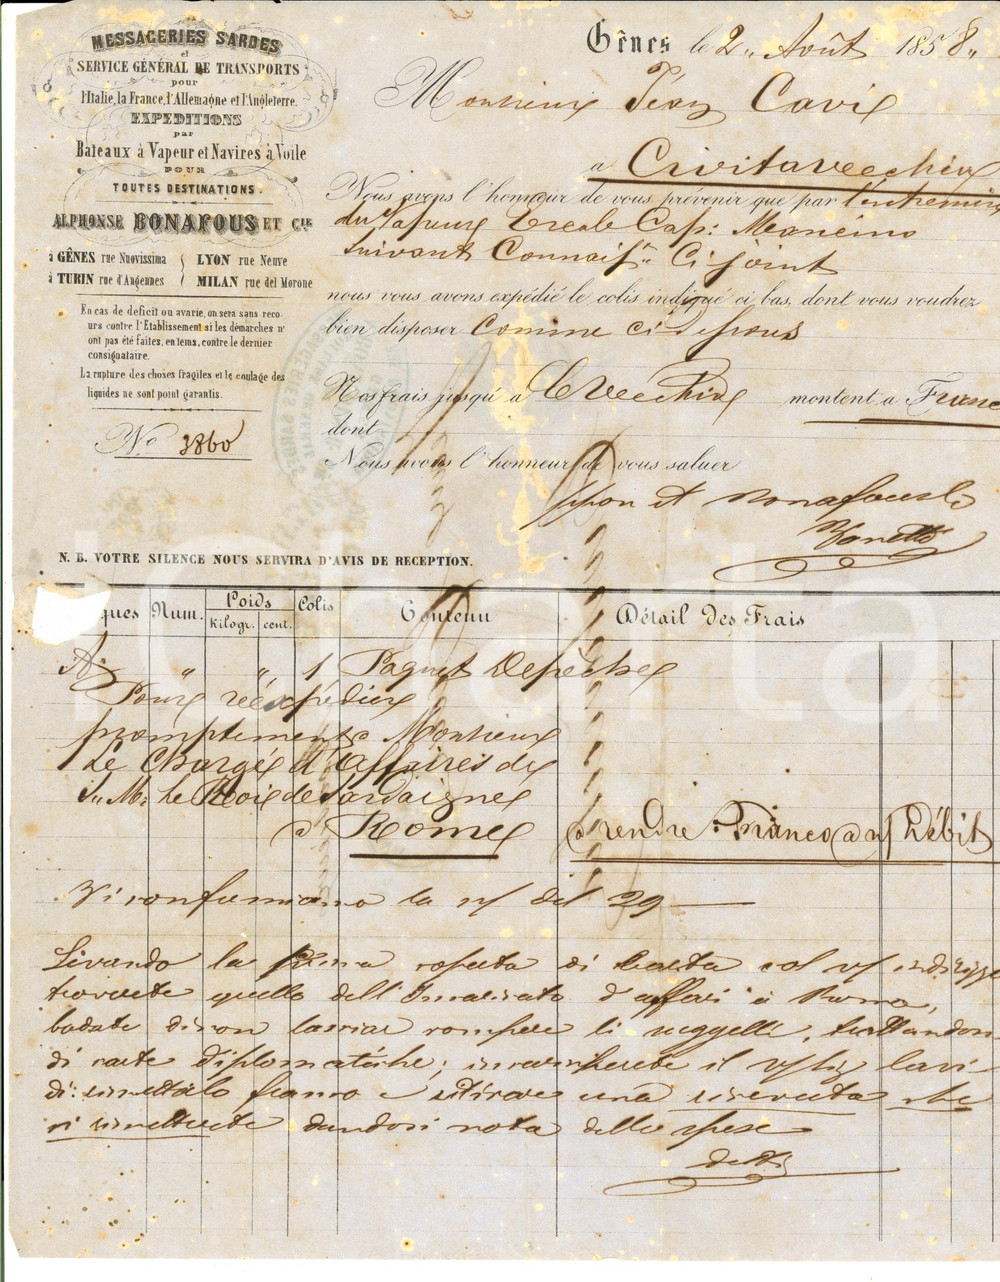 MESSAGERIES SARDES
et
SERVICE GÉNÉRAL DE TRANSPORTS
pour
l'Italie, la France, l'Allemagne et l'Angleterre.
EXPEDITIONS
par
Bateaux à Vapeur et Navires à Voile
POUR
TOUTES DESTINATIONS.
ALPHONSE BONAFOUS ET CIE
à GÊNES rue Nuovissima
à TURIN rue d'Angennes
LYON rue Neuve
MILAN rue del Morone
En cas de deficit ou avarie, on sera sans recours
ours contre l'Etablissement si les démarches n'
ont pas été faites, en tems, contre le dernier
consignataire.
La rupture des choses fragiles et le coulage des
liquides ne sont point garantis.
No 3860
Gênes le 2 „ Août 1858 „
Monsieur Jean
a Civitavecchia
Nous avons l'honneur de vous prévenir que par l'entremise
du Vapeur Ercole Cap: Mancino
suivant Connaiss. ci joint
nous vous avons expédié le colis indiqué ci bas, dont vous voudrez
bien disposer comme ci dessous
Nos frais jusqu'à CVecchia montent a Franc
dont
Nous avons l'honneur de vous saluer
N. B. VOTRE SILENCE NOUS SERVIRA D'AVIS DE RECEPTION.
ques Num. Poids Colis Contenu Détail des Frais
Kilogr. cent.
A: " " 1 Paquet Depêches
Pour réexpedier
promptement a Monsieur
Le Chargé d'Affaires de
S. M. Le Roi de Sardaigne
a Rome a rendre Franco a n/ Débit
Vi confermiamo la n/ del 29
Levando la prima coperta di carta col v/ indirizzo
troverete quello dell'Incaricato d'affari a Roma,
badate di non lasciar rompere li suggelli, trattandosi
di carte diplomatiche;
di rimetterlo franco e ritirare una ricevuta che
ci rimetterete dandoci nota delle spese